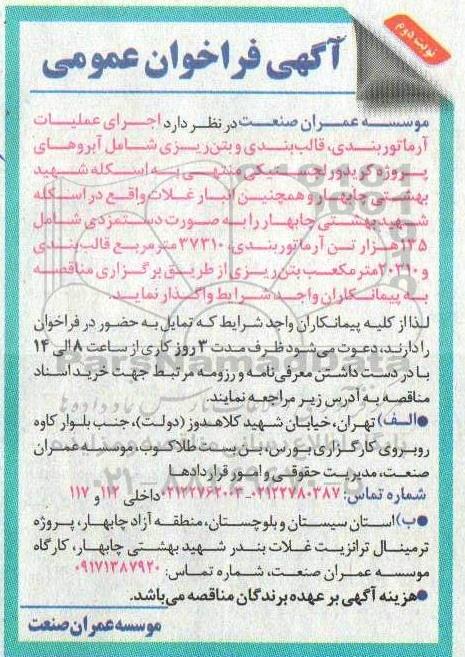 نوبت دوم
آگهی فراخوان عمومی
موسسه عمران صنعت در نظر دارد اجرای عملیات
آرماتوربندی، قالب‌بندی و بتن‌ریزی شامل آبروهای
پروژه کریدور لجستیکی منتهی به اسکله شهید
بهشتی چابهار و همچنین انبار غلات واقع در اسکله
شهید بهشتی چابهار را به صورت دستمزدی شامل
۱۳۵ هزار تن آرماتوربندی، ۳۷۳۱۰ متر مربع قالب‌بندی
و ۲۰۳۱۰ متر مکعب بتن‌ریزی از طریق برگزاری مناقصه
به پیمانکاران واجد شرایط واگذار نماید.
لذا از کلیه پیمانکاران واجد شرایط که تمایل به حضور در فراخوان
را دارند، دعوت می‌شود ظرف مدت ۳ روز کاری از ساعت ۸ الی ۱۴
با در دست داشتن معرفی‌نامه و رزومه مرتبط جهت خرید اسناد
مناقصه به آدرس زیر مراجعه نمایند.
●الف) تهران، خیابان شهید کلاهدوز (دولت)، جنب بلوار کاوه
روبروی کارگزاری بورس، بن‌بست طلاکوب، موسسه عمران
صنعت، مدیریت حقوقی و امور قراردادها
شماره تماس: ۰۲۱۲۲۷۸۰۳۸۷-۰۲۱۲۲۷۶۲۰۳ داخلی ۱۱۲ و ۱۱۷
●ب) استان سیستان و بلوچستان، منطقه آزاد چابهار، پروژه
ترمینال ترانزیت غلات بندر شهید بهشتی چابهار، کارگاه
موسسه عمران صنعت، شماره تماس: ۰۹۱۷۱۳۸۷۹۲۰
●هزینه آگهی بر عهده برندگان مناقصه می‌باشد.
موسسه عمران صنعت